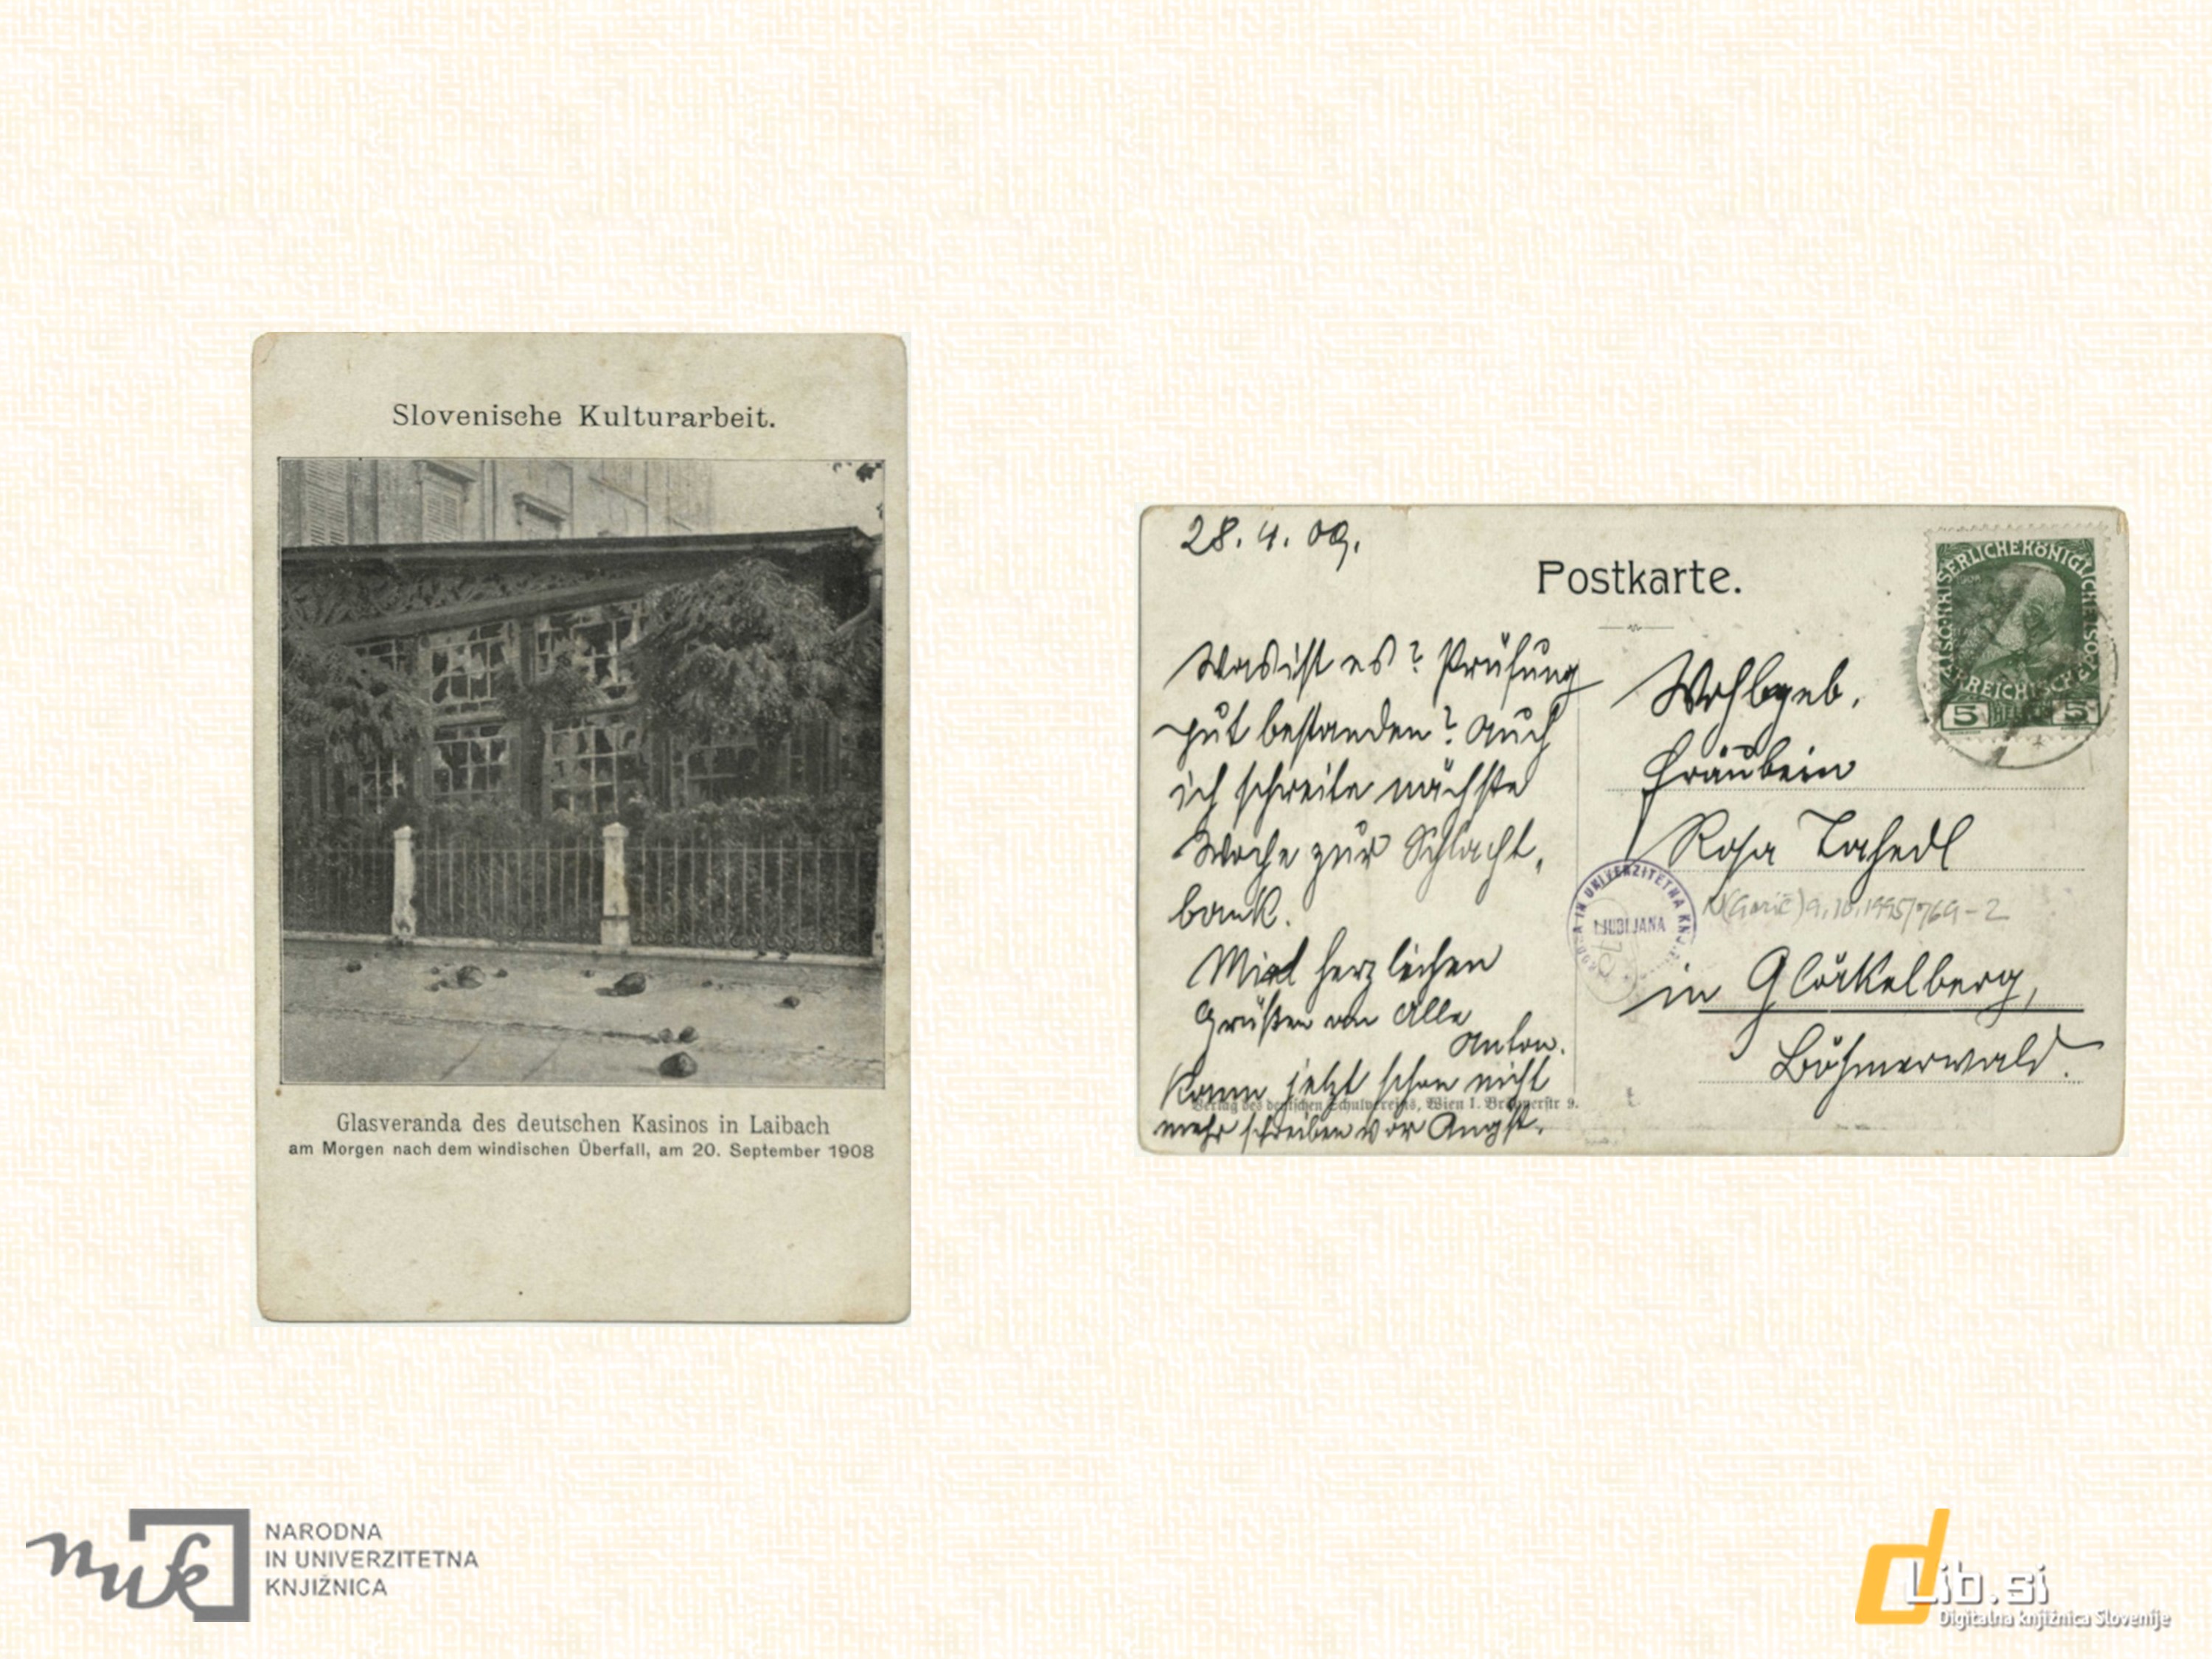 Slovenische Kulturarbeit.
Glasveranda des deutschen Kasinos in Laibach
am Morgen nach dem windischen Überfall, am 20. September 1908
28. 4. 09.
Postkarte.
Was ist es? Prüfung
gut bestanden? Auch
ich schreite nächste
Woche zur Schlacht-
bank.
Mit herzlichen
Grüßen an Alle
Anton.
Kann jetzt schon nicht
mehr schreiben vor Angst.
Verlag des deutschen Schulvereins, Wien I. Bräunerstr 9.
Wohlgeb.
Fräulein
Rosa
in Glöckelberg,
Böhmerwald.
KAISERLICHE KÖNIGLICHE ÖSTERREICHISCHE
5 5
IN UNIVERZITETNA KNJ
LJUBLJANA
N(Gorič) 9.10.1995/769-2
nuk
NARODNA
IN UNIVERZITETNA
KNJIŽNICA
dLib.si
Digitalna knjižnica Slovenije